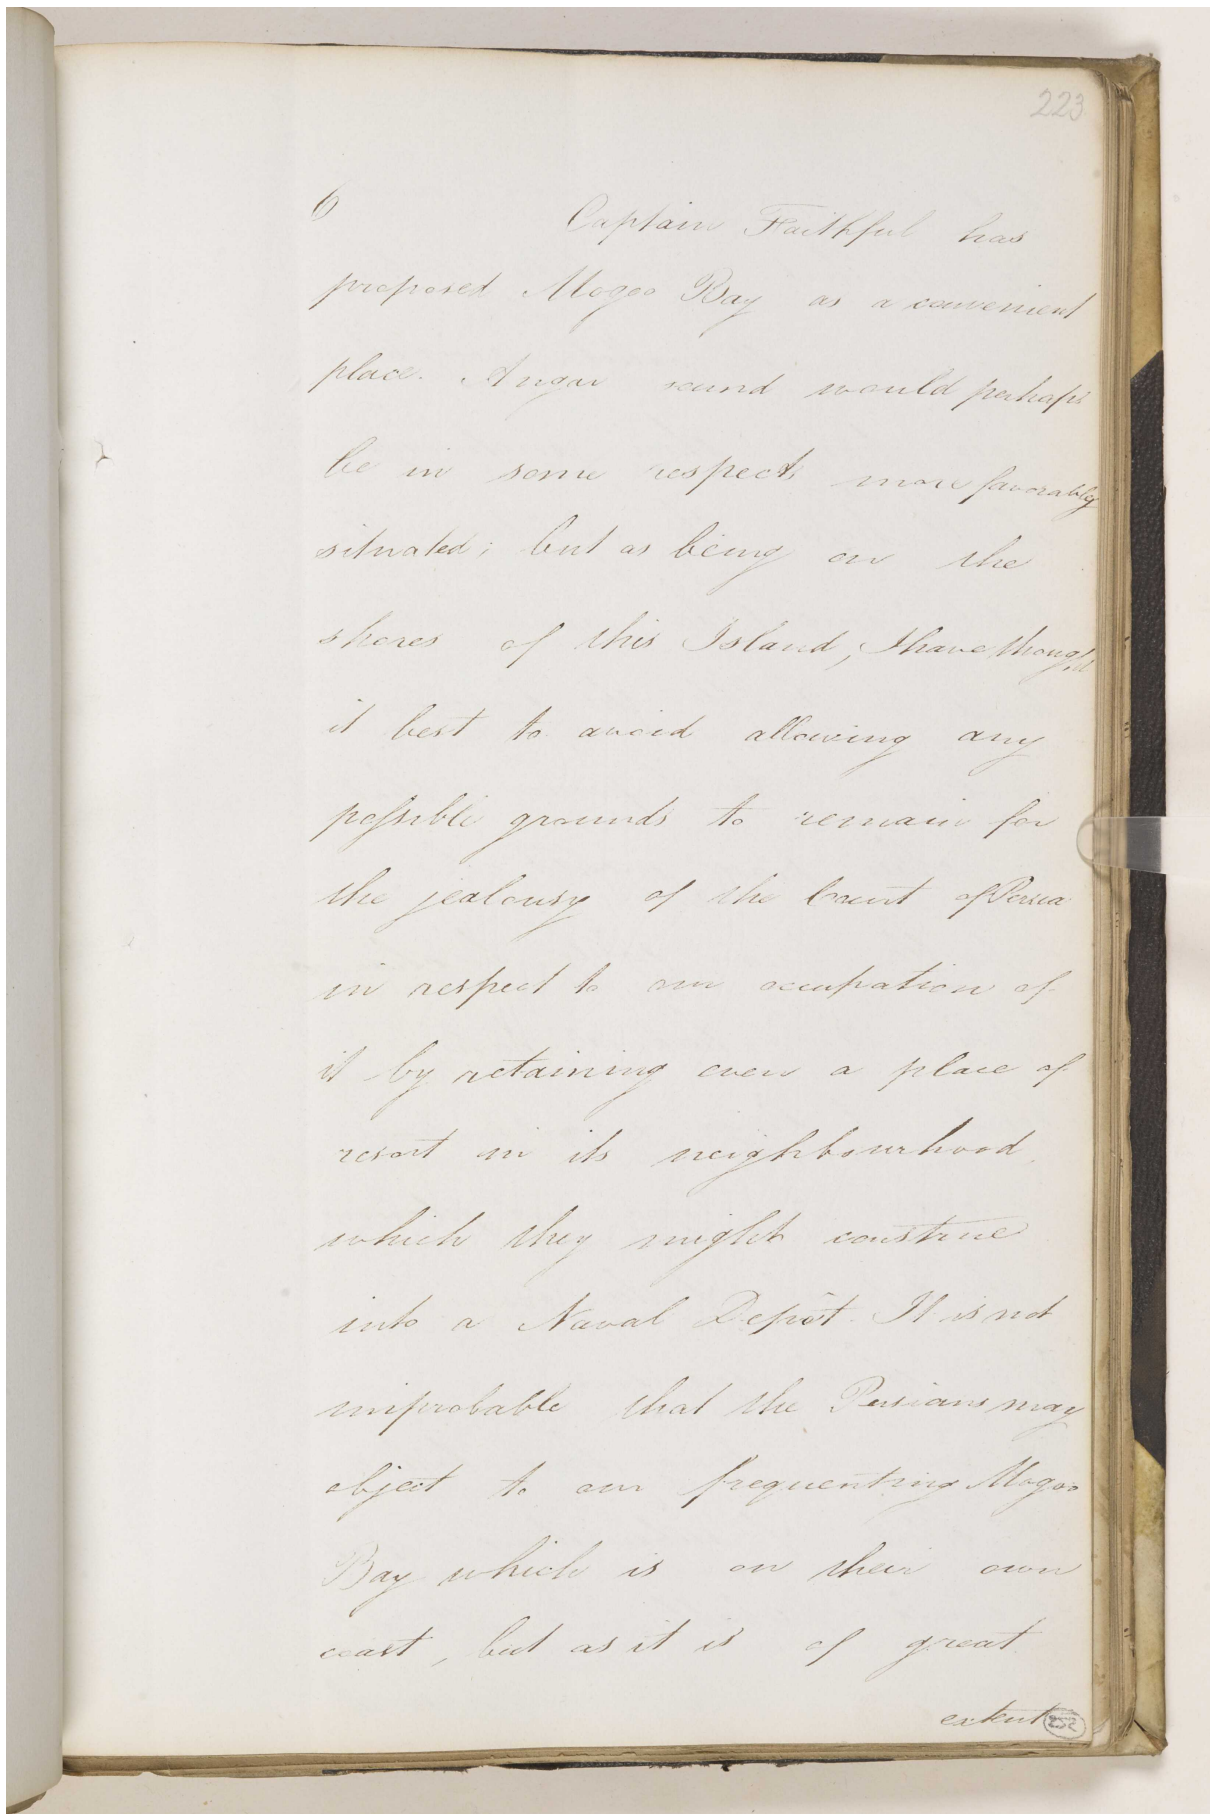 223
6 Captain Faithful has
proposed Mogoo Bay as a convenient
place. Angar sound would perhaps
be in some respects more favorably
situated; but as being on the
shores of this Island, I have thought
it best to avoid allowing any
possible grounds to remain for
the jealousy of the Court of Persia
in respect to our occupation of
it by retaining even a place of
resort in its neighbourhood
which they might construe
into a Naval Depôt. It is not
improbable that the Persians may
object to our frequenting Mogoo
Bay which is on their own
coast, but as it is of great
extent